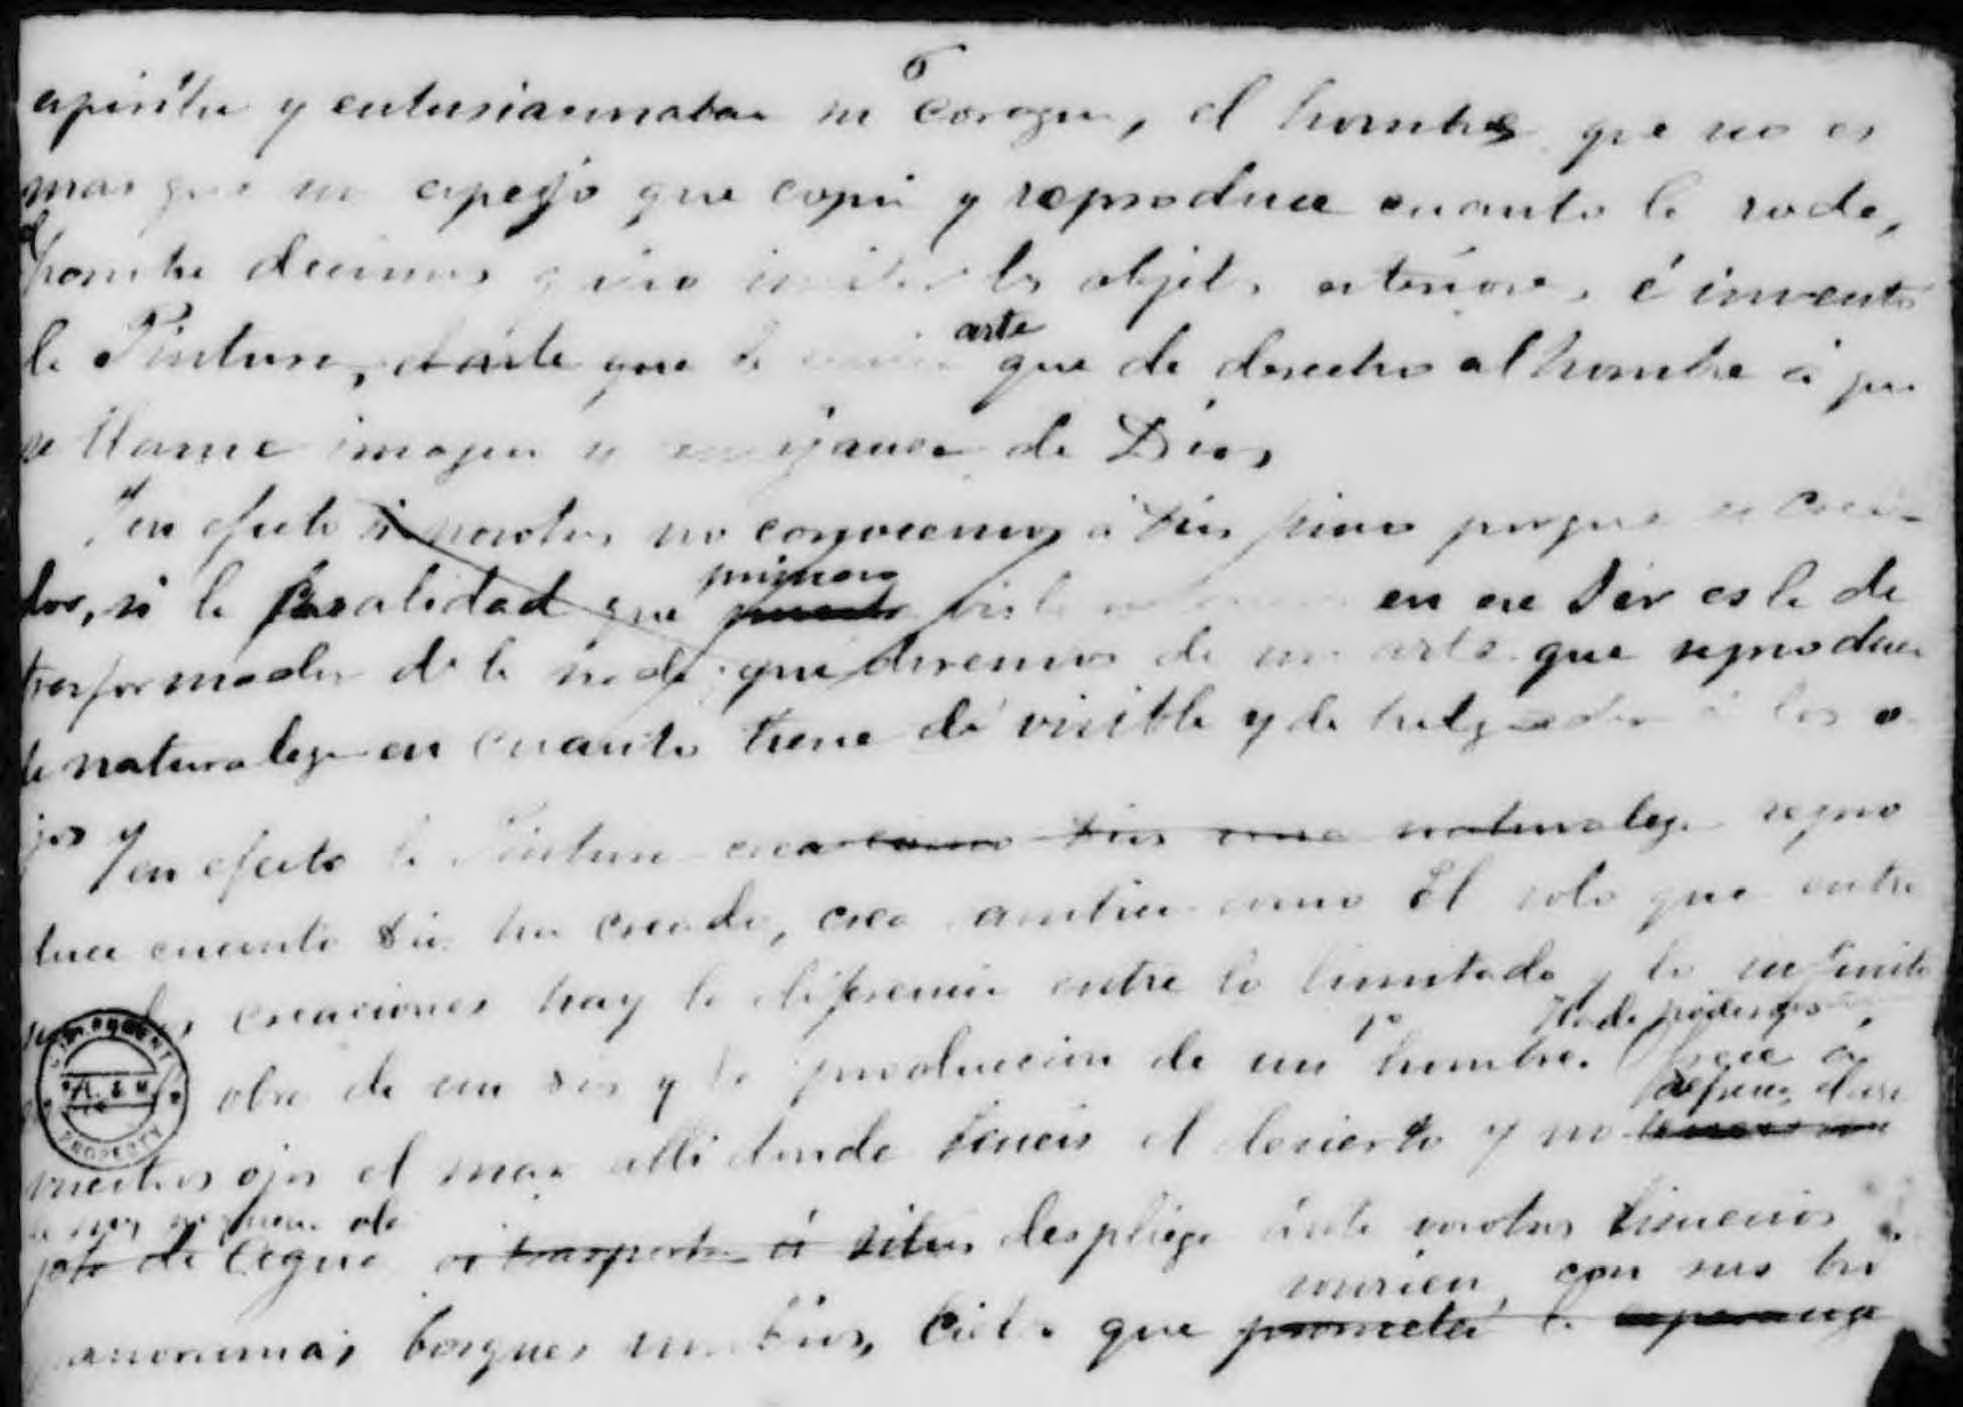 6
espiritu y entusiasmaban su corazon, el hombre que no es
mas que un espejo que copia y reproduce cuanto le rodea,
el hombre decimos quiso imitar los objetos esteriores é inventó
la Pintura, el arte que arte que da derecho al hombre á que
se llame imagen y semejanza de Dios
Y en efecto si nosotros no conocemos á Dios sino porque es Crea-
dor, si la cualidad que primero en ese Ser es la de
trasformador de la nada, que diremos de un arte que reproduce
la naturaleza en cuanto tiene de visible y de á los o-
jos Y en efecto la Pintura crea como Dios una naturaleza repro
duce cuanto Dios ha creado, crea tambien como El solo que entre
sus creaciones hay la diferencia entre lo limitado y lo infinito
obra de un Dios y la produccion de un pº hombre.
hace á
vuestros ojos el mar alli donde teneis el desierto y no teneis una
gota de agua os trasporta á sitios despliega ante vosotros inmensos
sonrien con sus
panoramas, bosques sombrios, cielos que prometen la esperanza